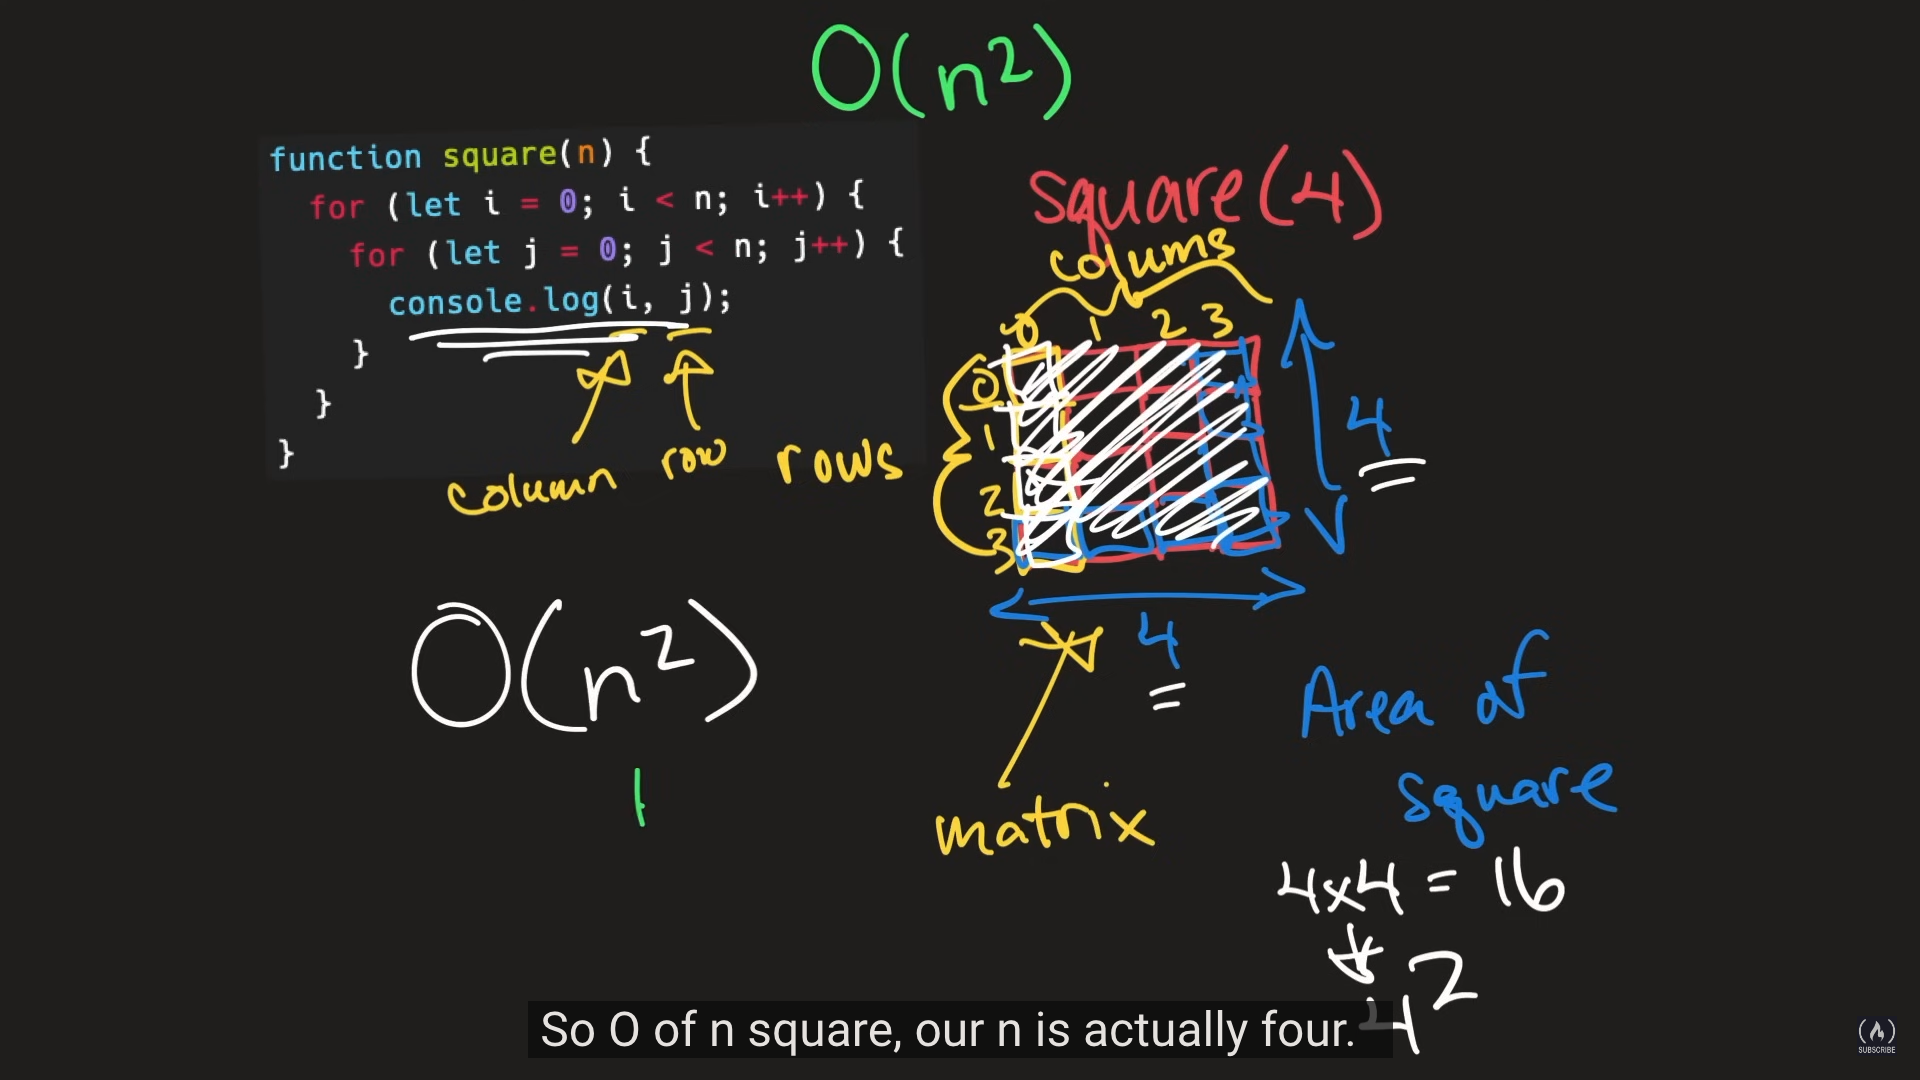 O(n²)
function square(n) {
for (let i = 0; i < n; i++) {
for (let j = 0; j < n; j++) {
console.log(i, j);
}
}
}
column
row
square(4)
colums
0 1 2 3
rows
0
1
2
3
4
4
O(n²)
matrix
Area of
square
4x4 = 16
4²
So O of n square, our n is actually four.
SUBSCRIBE